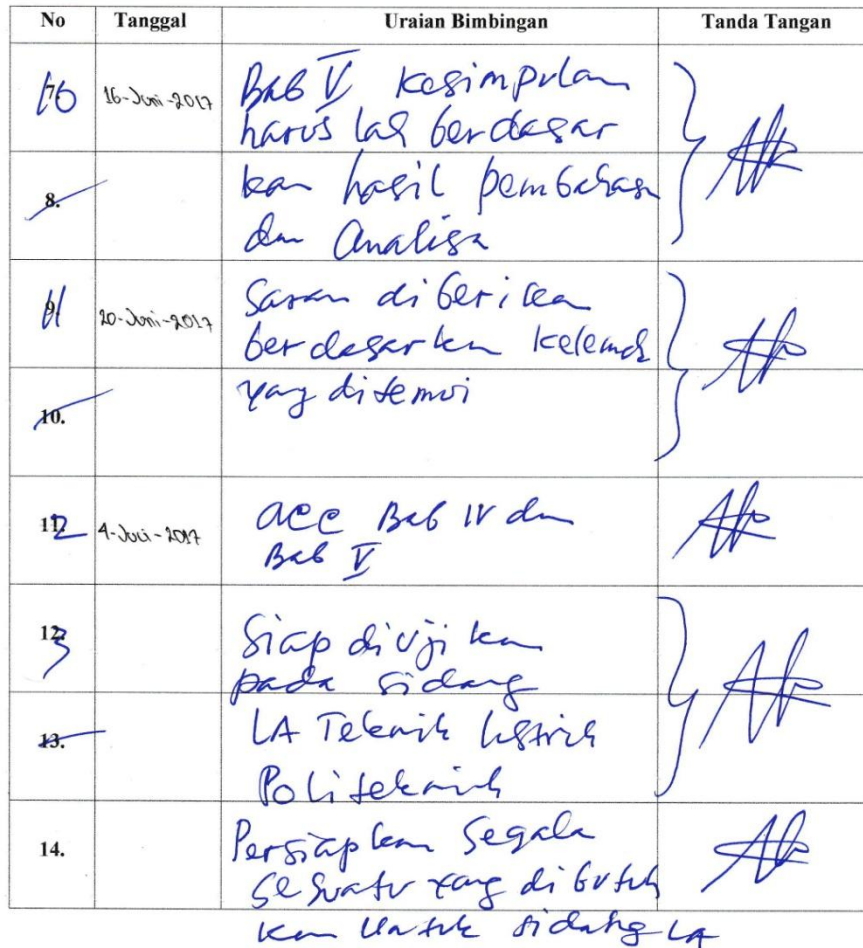 No Tanggal Uraian Bimbingan Tanda Tangan
10 16-Juni-2017 Bab V Kesimpulan
harus lah berdasar
8. kan hasil pembahasan
dan Analisa
11 20-Juni-2017 Saran diberikan
berdasarkan kelemah
10. yang ditemui
12 4-Juli-2017 acc Bab IV dan
Bab V
13 Siap diujikan
pada sidang
13. LA Teknik Listrik
Politeknik
14. Persiapkan Segala
Sesuatu yang dibutuh
kan Untuk sidang LA